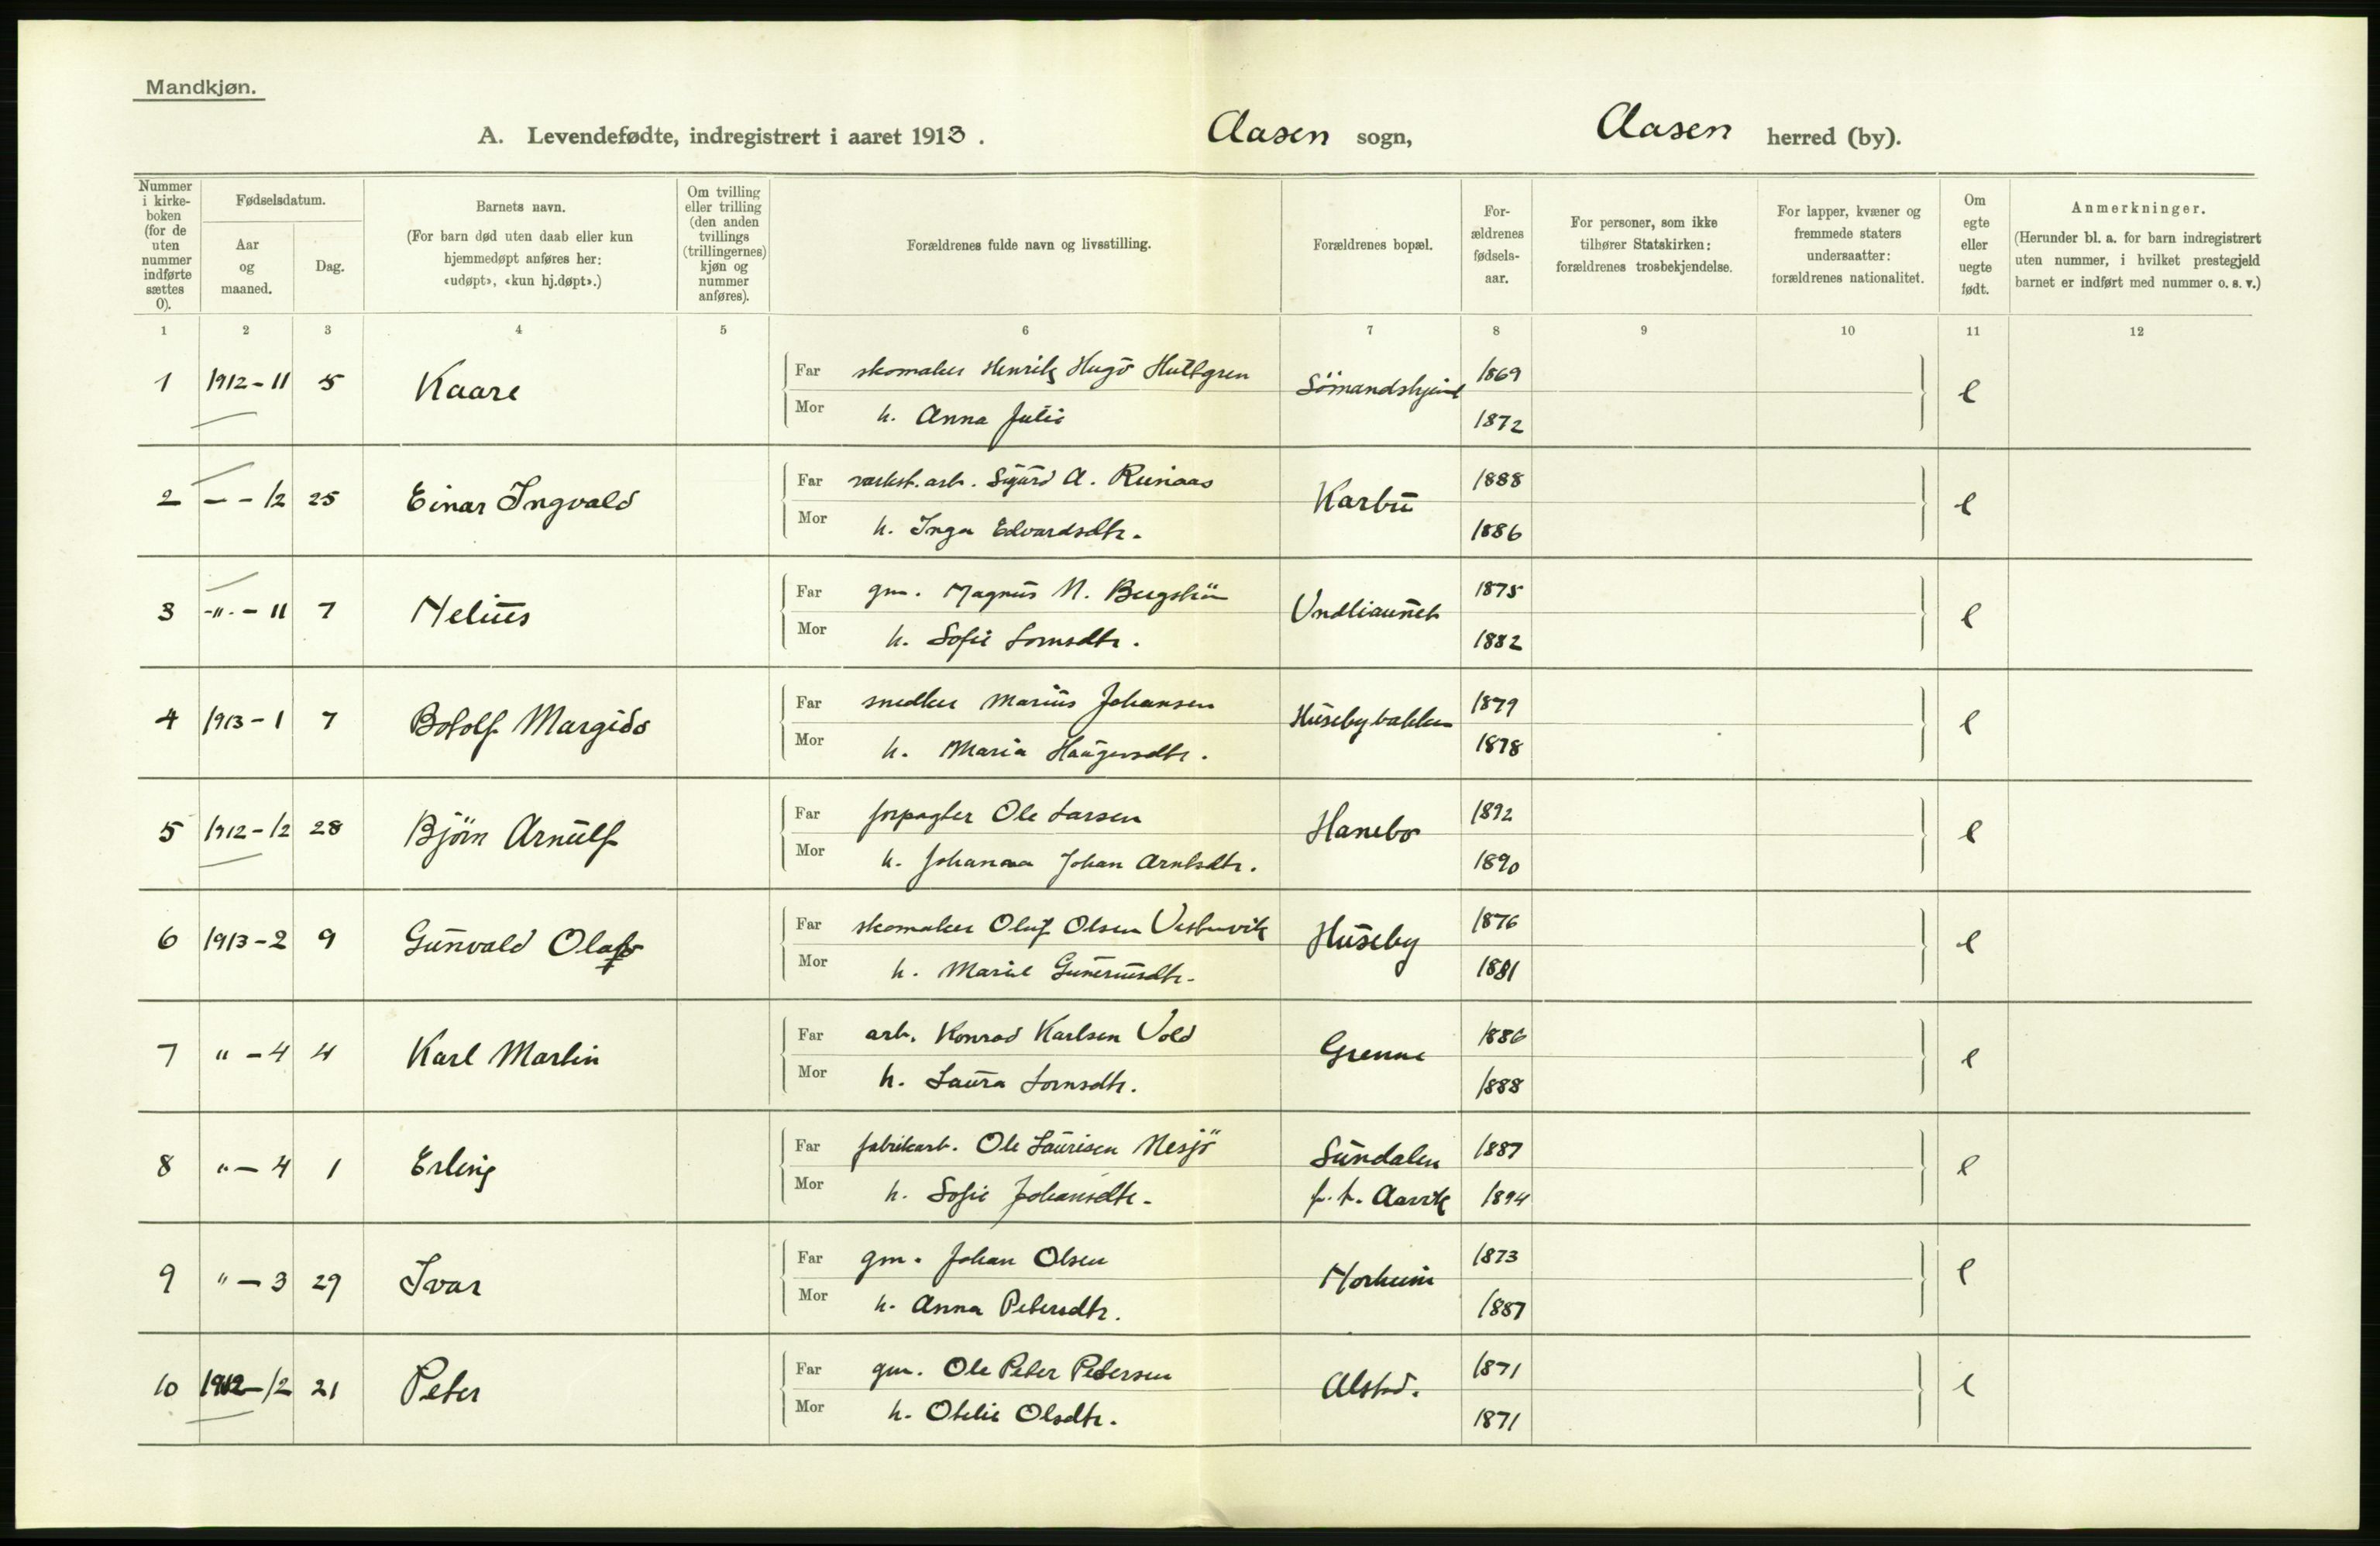 Mandkjøn.
A. Levendefødte, indregistrert i aaret 1913. Aasen sogn, Aasen herred (by).
Nummer i kirke- boken (for de uten nummer indførte sættes 0).
Fødselsdatum.
Aar og maaned.
Dag.
Barnets navn.
(For barn død uten daab eller kun hjemmedøpt anføres her: «udøpt», «kun hj.døpt».)
Om tvilling eller trilling (den anden tvillings (trillingernes) kjøn og nummer anføres).
Forældrenes fulde navn og livsstilling.
Forældrenes bopæl.
For- ældrenes fødsels- aar.
For personer, som ikke tilhører Statskirken: forældrenes trosbekjendelse.
For lapper, kvæner og fremmede staters undersaatter: forældrenes nationalitet.
Om egte eller uegte født.
Anmerkninger.
(Herunder bl. a. for barn indregistrert uten nummer, i hvilket prestegjeld barnet er indført med nummer o. s. v.)
1 2 3 4 5 6 7 8 9 10 11 12
1 1912 - 11 5 Kaare Far skomaker Henrik Hugo Hultgren Sömandshjem 1869 e
Mor h. Anna Julie 1872
2 — - 12 25 Einar Ingvald Far verkst. arb. Sigurd A. Runaas Karbu 1888 e
Mor h. Inga Edvardsdtr. 1886
3 -"- - 11 7 Nelius Far gm. Magnus N. Undliaunet 1875 e
Mor h. Sofie Lornsdtr. 1882
4 1913 - 1 7 Botolf Margido Far snedker Marius Johansen Husebybakken 1879 e
Mor h. Maria Haagensdtr. 1878
5 1912 - 12 28 Björn Arnulf Far forpagter Ole Larsen Hanebo 1892 e
Mor h. Johanna Johan Arntsdtr. 1890
6 1913 - 2 9 Gunvald Olaf Far skomaker Oluf Olsen Vestervik Huseby 1876 e
Mor h. Marie Gunerusdtr. 1881
7 " - 4 4 Karl Martin Far arb. Konrad Karlsen Vold Grenne 1886 e
Mor h. Laura Lornsdtr. 1888
8 " - 4 1 Erling Far fabrikarb. Ole Laurisen Nesjö Sundalen 1887 e
Mor h. Sofie Johansdtr. p. t. Aavik 1894
9 " - 3 29 Ivar Far gm. Johan Olsen Norheim 1873 e
Mor h. Anna Petersdtr. 1887
10 1912 - 12 21 Peter Far gm. Ole Peter Pedersen Alstad. 1871 e
Mor h. Otelie Olsdtr. 1871